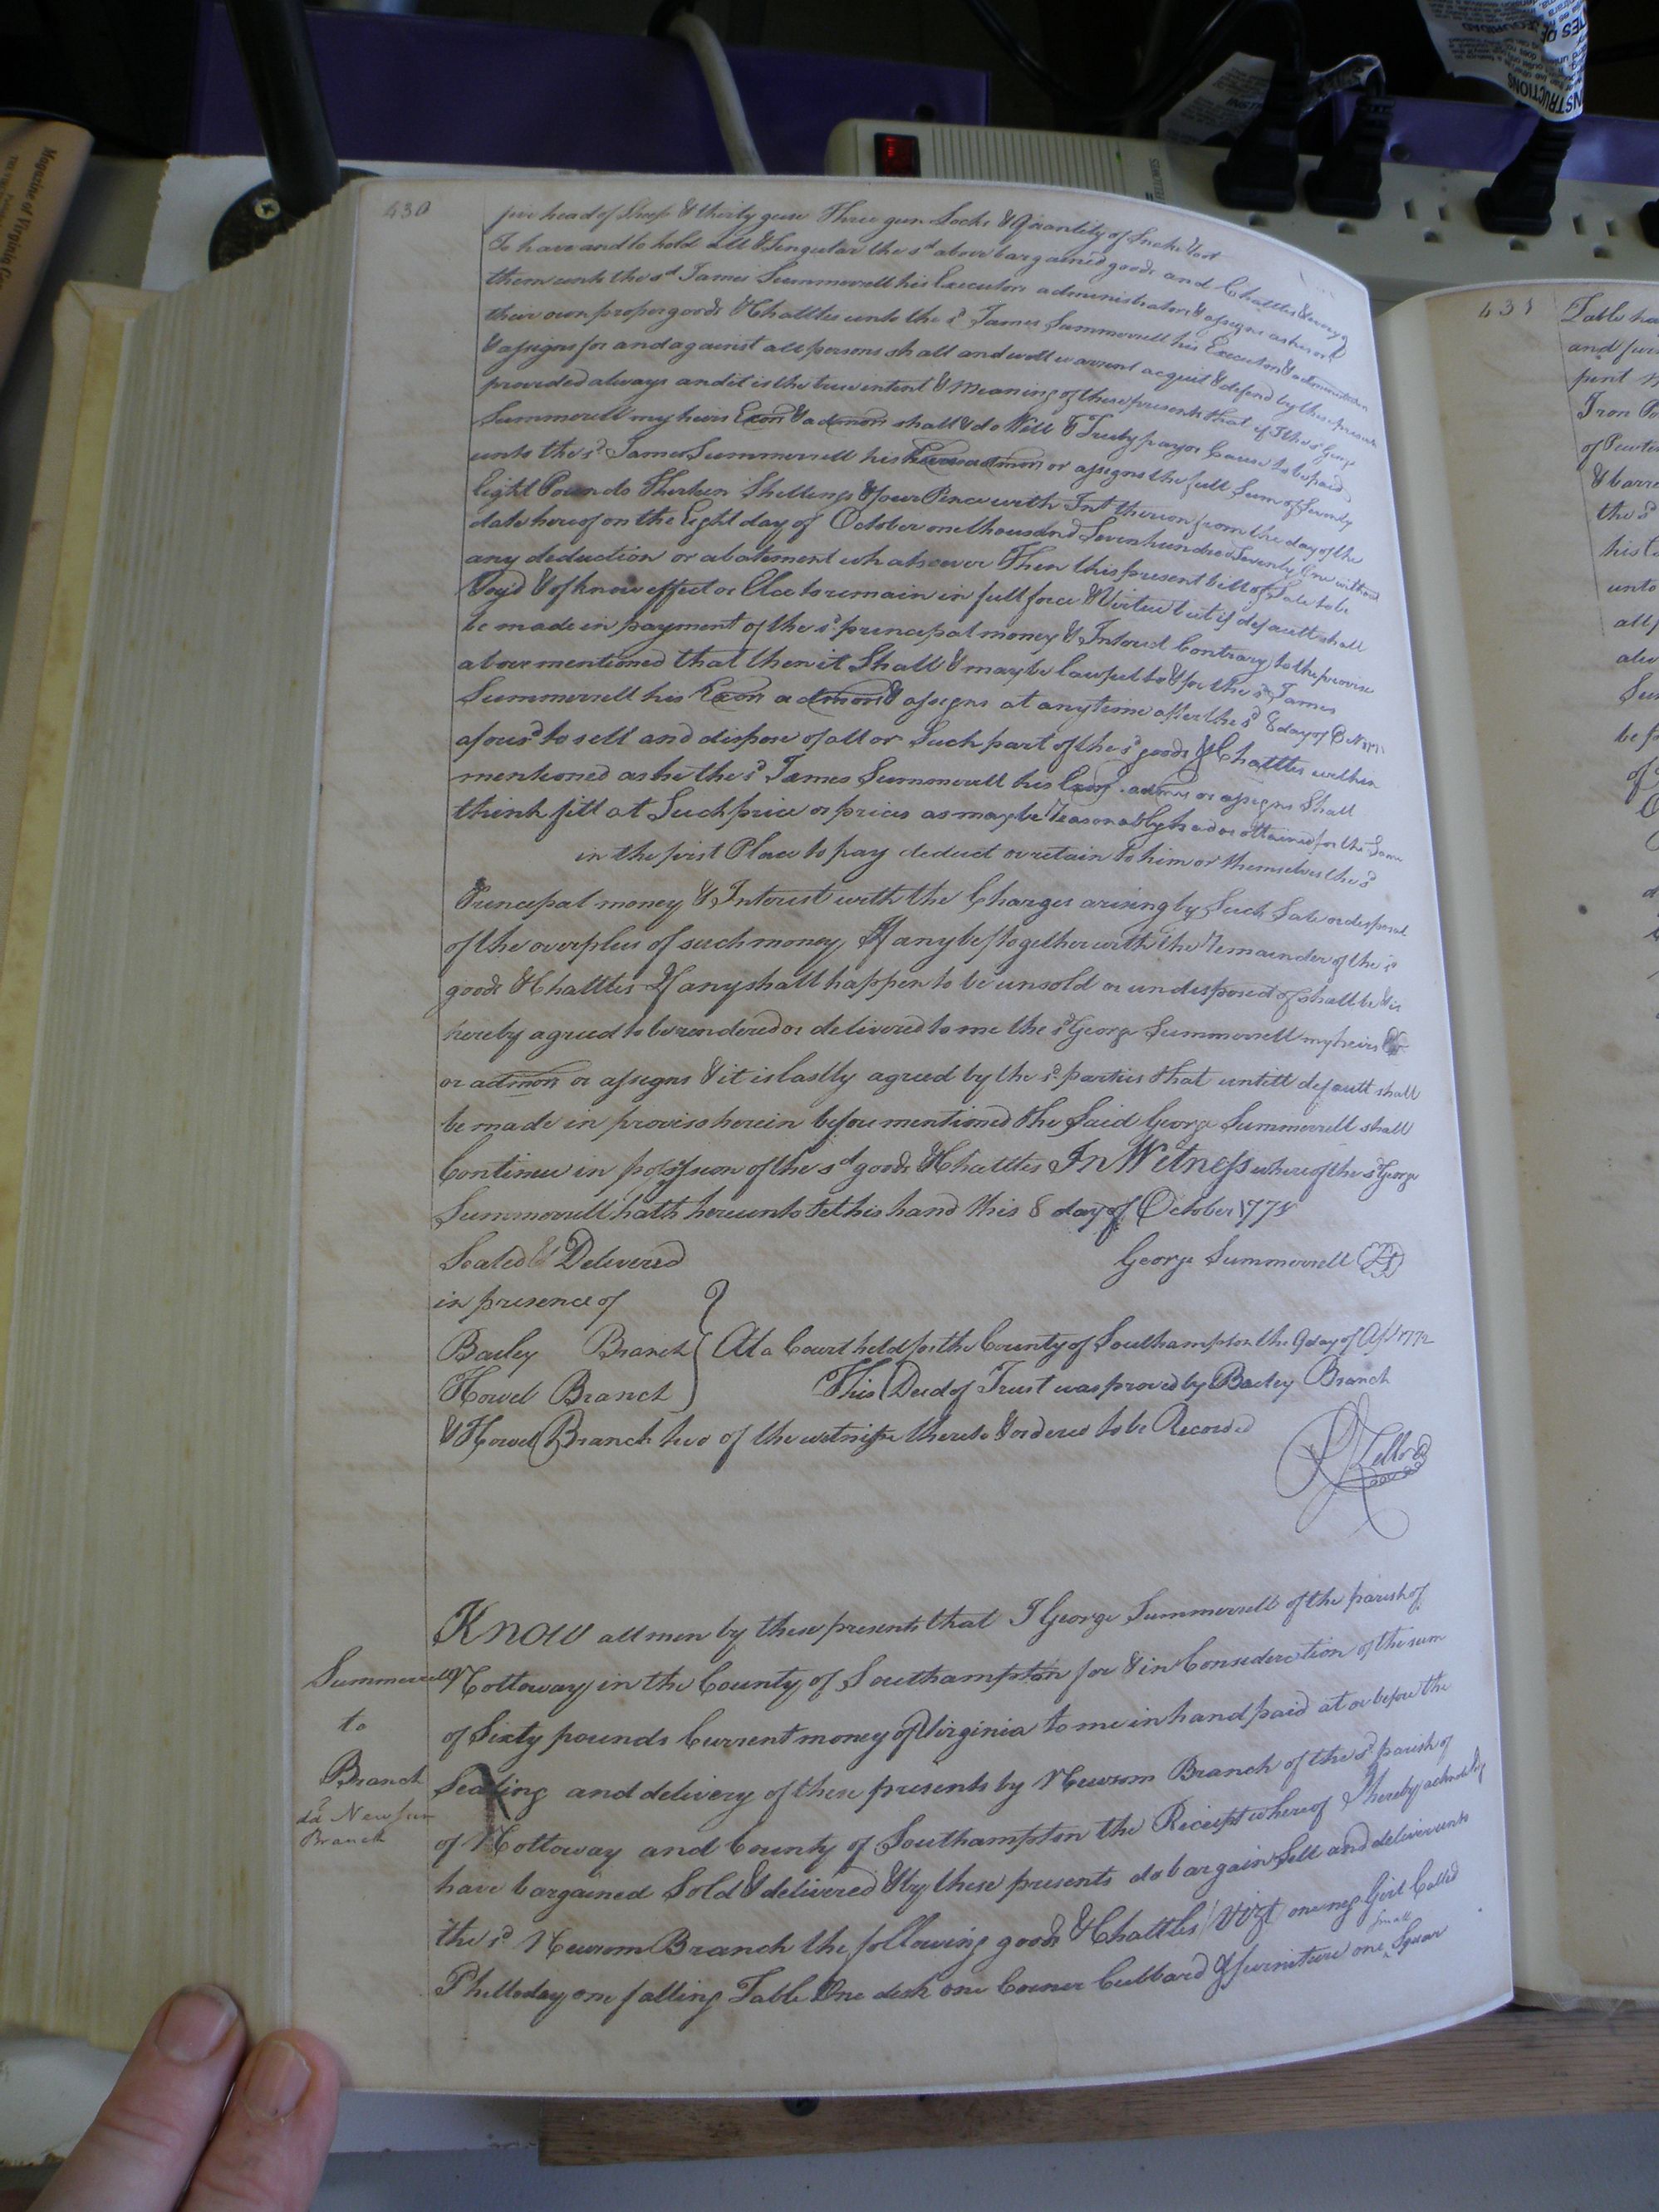 430
five head of Sheep & thirty geese Three gun Locks & Quantity of Snake Root
To have and to hold all & Singular the sd above bargained goods and Chattles & every of
them unto the sd James Summerrell his Executors administrators & assigns as his or
their own proper goods & Chattles unto the sd James Summerrell his Executors & administrators
& assigns for and against all persons shall and will warrent acquit & defend by these presents
provided always and it is the true intent & Meaning of these presents that if I the sd George
Summerrell my heirs Exors & admors shall & do Well & Truly pay or Cause to be paid
unto the sd James Summerrell his admors or assigns the full Sum of Seventy
Eight Pounds Therteen Shillings & four Pence with Int thereon from the day of the
date hereof on the Eight day of October one thousand Seven hundred Seventy One without
any deduction or abatement whatsoever Then this present bill of Sale to be
Voyd & of know effect or Else to remain in full force & Virtue but if default shall
be made in payment of the sd principal money & Interest Contrary to the proviso
above mentioned that then it Shall & may be lawful to & for the sd James
Summerrell his Exors admors & assigns at any time after the sd 8 day of
afousd to sell and dispose of all or Such part of the sd goods & Chattles within
mentioned as he the sd James Summerrell his Exors admors or assigns Shall
think fitt at Such price or prices as may be reasonably had or obtained for the Same
in the first Place to pay deduct or retain to him or themselves the sd
Principal money & Interest with the Charges arising by Such Sale or disposal
of the overplus of such money If any be together with the Remainder of the sd
goods & Chattles If any shall happen to be unsold or undisposed of shall be & is
hereby agreed to be rendered or delivered to me the sd George Summerrell my heirs
or admors or assigns & it is lastly agreed by the sd parties that untill default shall
be made in proviso herein before mentioned the Said George Summerrell shall
Continue in possession of the sd goods & Chattles In Witness whereof the sd George
Summerrell hath hereunto set his hand this 8 day of October 1771
Sealed & Delivered George Summerrell LS
in presence of
Bailey Branch At a Court held for the County of Southampton the 9 day of Apl 1772
Howel Branch This Deed of Trust was proved by Bailey Branch
& Howel Branch two of the witnesses thereto & ordered to be Recorded
Know all men by these presents that I George Summerrell of the parish of
Summerrell
to
Branch
dd Newsum
Branch
Nottoway in the County of Southampton for & in Consideration of the sum
of Sixty pounds Current money of Virginia to me in hand paid at or before the
Sealing and delivery of these presents by Newsom Branch of the sd parish of
of Nottoway and County of Southampton the Receipt whereof I hereby acknowledg
have bargained Sold & delivered & by these presents do bargain Sell and deliver unto
the sd Newsom Branch the following goods & Chattles Vizt one neg Girl Called
Philloday one falling Table One desk one Corner Cubbard & furniture one small Squar
431
Table
and
Iron
of Pewter
the sd
unto
Magazine of Virginia
INSTRUCTIONS
FELLOWES